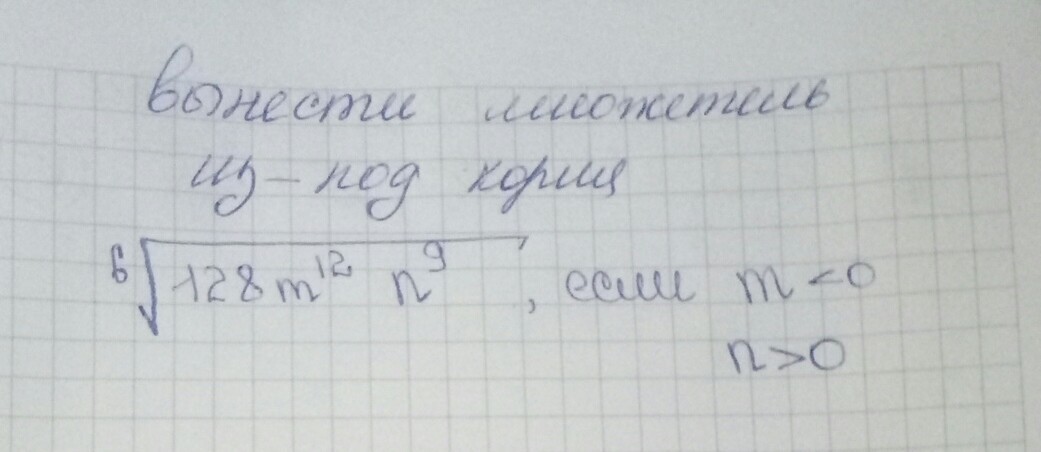 вынести множитель
из-под корня
⁶√128m¹² n⁹, если m<0
n>0